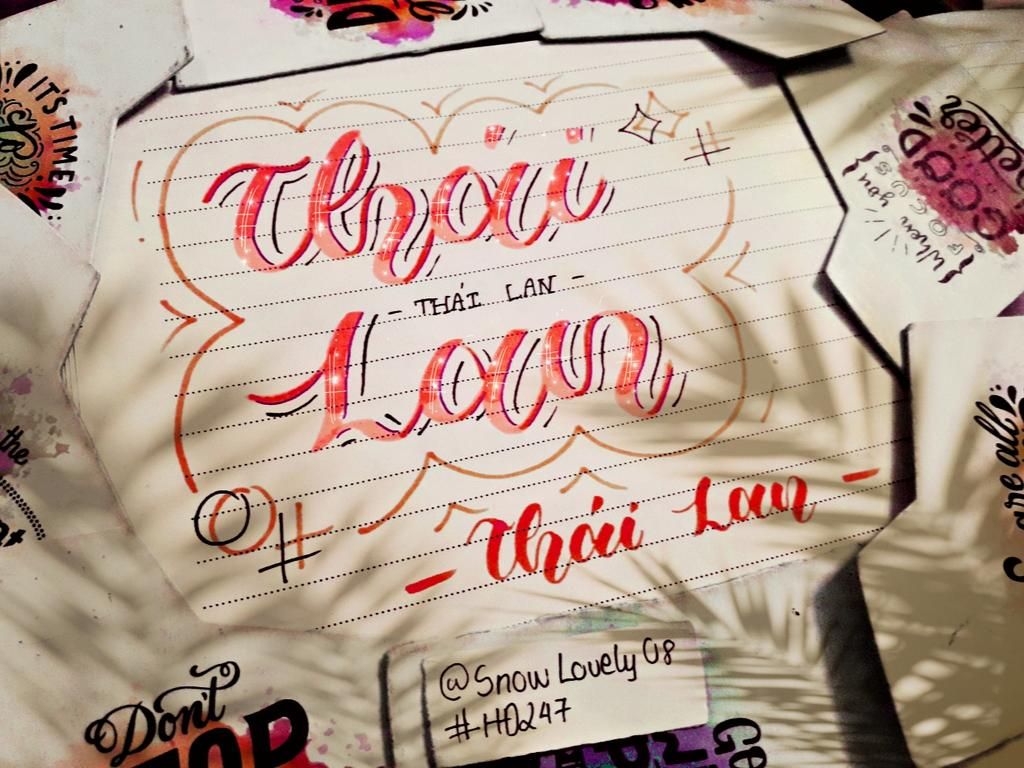 IT'S TIME
Thái
#
GOOD
better
{ When you
FOCUS
- THÁI LAN -
Lan
#
- Thái Lan -
the
are all
@Snow Lovely 08
#-HD247
Don't